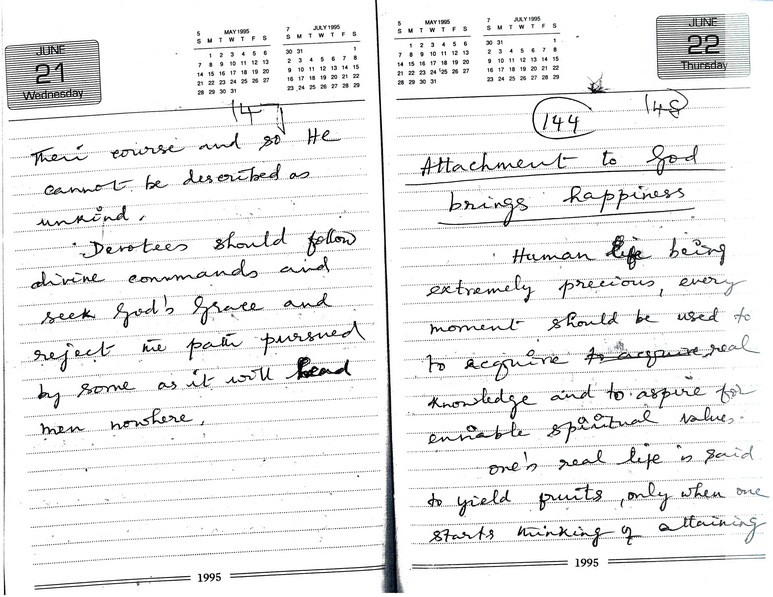 JUNE
21
Wednesday
5 MAY 1995
S M T W T F S
1 2 3 4 5 6
7 8 9 10 11 12 13
14 15 16 17 18 19 20
21 22 23 24 25 26 27
28 29 30 31
7 JULY 1995
S M T W T F S
30 31 1
2 3 4 5 6 7 8
9 10 11 12 13 14 15
16 17 18 19 20 21 22
23 24 25 26 27 28 29
147
Their course and so He
cannot be described as
unkind.
Devotees should follow
divine commands and
seek God's Grace and
reject the path pursued
by some as it will lead
men nowhere.
1995
5 MAY 1995
S M T W T F S
1 2 3 4 5 6
7 8 9 10 11 12 13
14 15 16 17 18 19 20
21 22 23 24 25 26 27
28 29 30 31
7 JULY 1995
S M T W T F S
30 31 1
2 3 4 5 6 7 8
9 10 11 12 13 14 15
16 17 18 19 20 21 22
23 24 25 26 27 28 29
JUNE
22
Thursday
144 148
Attachment to God
brings happiness
Human life being
extremely precious, every
moment should be used to
to acquire to acquire real
knowledge and to aspire for
enviable spiritual values.
one's real life is said
to yield fruits, only when one
starts thinking of attaining
1995